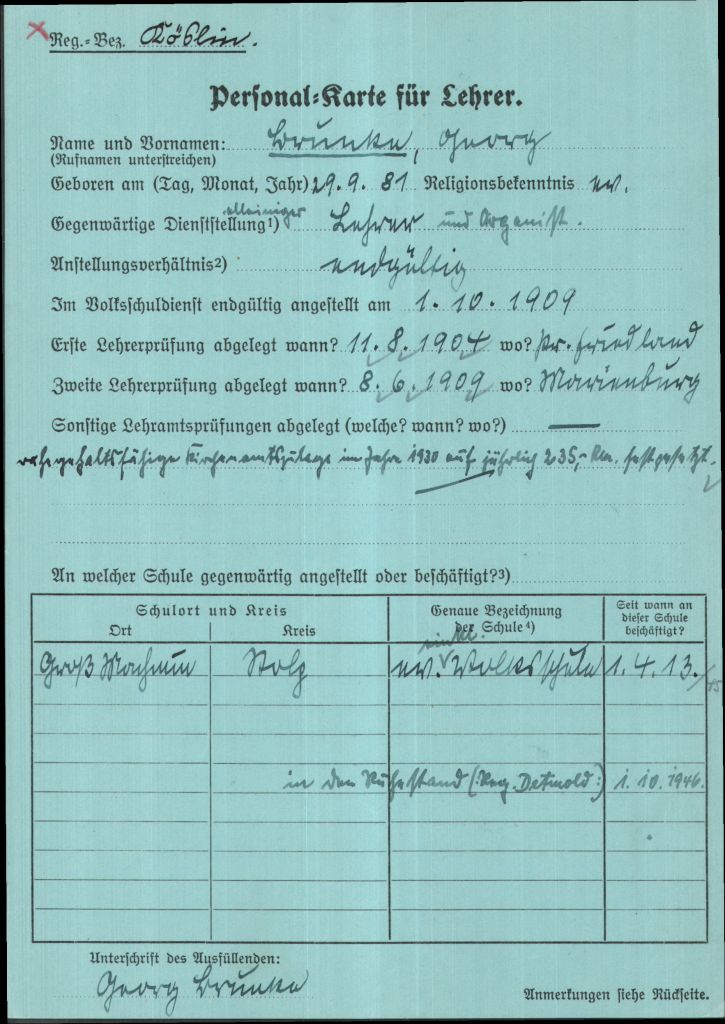 Reg.-Bez. Köslin.
Personal-Karte für Lehrer.
Name und Vornamen: Brunke, Georg
(Rufnamen unterstreichen)
Geboren am (Tag, Monat, Jahr) 29.9.81 Religionsbekenntnis ev.
alleiniger
Gegenwärtige Dienststellung¹) Lehrer und Organist.
Anstellungsverhältnis²) endgültig
Im Volksschuldienst endgültig angestellt am 1.10.1909
Erste Lehrerprüfung abgelegt wann? 11.8.1904 wo? Pr. Friedland
Zweite Lehrerprüfung abgelegt wann? 8.6.1909 wo? Marienburg
Sonstige Lehramtsprüfungen abgelegt (welche? wann? wo?) —
ruhegehaltsfähige Kirchenamtszulage im Jahre 1930 auf jährlich 235,- RM. festgesetzt.
An welcher Schule gegenwärtig angestellt oder beschäftigt?³)
Schulort und Kreis
Ort Kreis
Genaue Bezeichnung
der Schule⁴)
Seit wann an
dieser Schule
beschäftigt?
einkl.
Groß Machmin Stolp ev. Volksschule 1.4.13.
in den Ruhestand (: Reg. Detmold :) 1.10.1946.
Unterschrift des Ausfüllenden:
Georg Brunke
Anmerkungen siehe Rückseite.